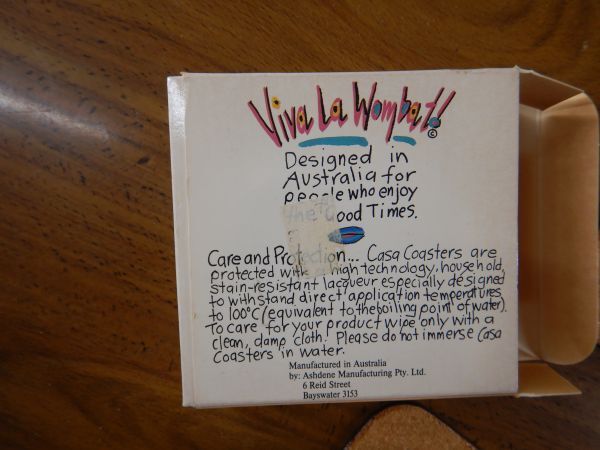 Viva La Wombat!
©
Designed in
Australia for
people who enjoy
the Good Times.
Care and Protection... Casa Coasters are
protected with a high technology, household,
stain-resistant lacqueur especially designed
to withstand direct application temperatures
to 100°C (equivalent to the boiling point of water).
To care for your product wipe only with a
clean, damp cloth. Please do not immerse Casa
Coasters in water.
Manufactured in Australia
by: Ashdene Manufacturing Pty. Ltd.
6 Reid Street
Bayswater 3153